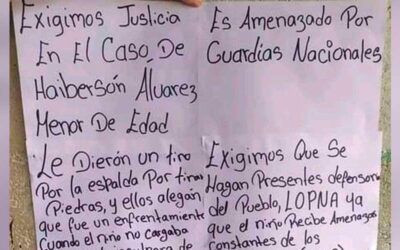 Exigimos Justicia
En El Caso De
Haiberson Alvarez
Menor De Edad
Le Dierón un tiro
Por la espalda Por tirar
Piedras, y ellos alegan
que fue un enfrentamiento
Cuando el niño no cargaba
Es Amenazado Por
Guardias Nacionales
Exigimos Que Se
Hagan Presentes defensoria
del Pueblo, LOPNA ya
que el niño Recibe Amenazas
constantes de los